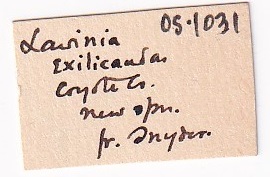 OS.1031
Lavinia
Exilicaudas
Coyote Cr.
new spn.
fr. Snyder.